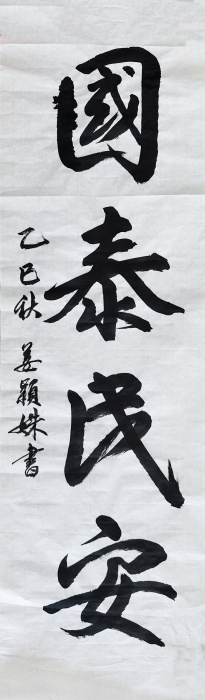 國泰民安
乙巳秋 姜穎姝書